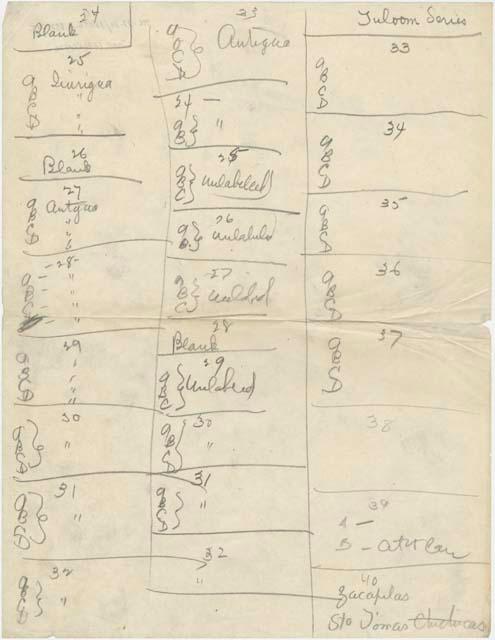 24
Blank
25
a Quirigua
B "
C "
D "
26
Blank
27
a Antgua
B "
C "
D "
-28-
a "
B "
C "
"
29
a "
B "
C "
D "
30
a
B "
C
D
31
a
B "
C
D
32
a
B "
C
D
23
a
B Antigua
C
D
24 —
a
B "
25
a
B Unlabeled
C
26
a
B. Unlabeled
27
a
B
C
28
Blank
29
a
B Unlabled
C
30
a
B "
C
D
31
a
B "
C
32
"
Tuloom Series
33
a
B
C
D
34
a
B
C
D
35
a
B
C
D
36
a
B
C
D
37
a
B
C
D
38
39
A —
B — Atitlan
40
Zacapulas
Sto Tomas Chichicas